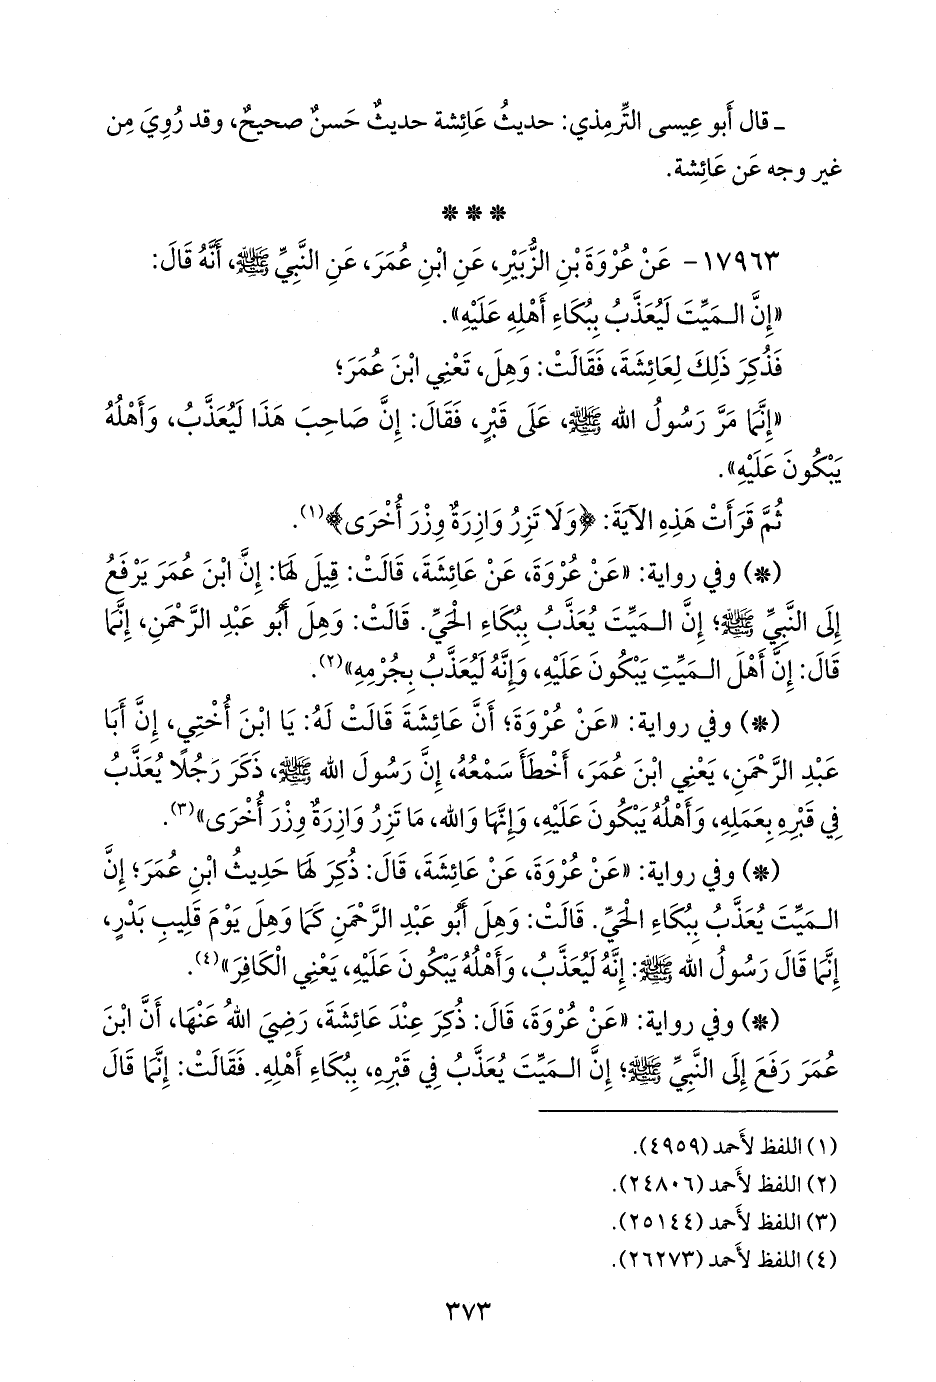 ـ قال أَبو عِيسى التِّرمِذي: حديثُ عَائِشة حديثٌ حَسنٌ صحيحٌ، وقد رُوِيَ مِن
غير وجه عَن عَائِشة.
* * *
١٧٩٦٣- عَنْ عُرْوَةَ بْنِ الزُّبَيْرِ، عَنِ ابْنِ عُمَرَ، عَنِ النَّبِيِّ ﷺ، أَنَّهُ قَالَ:
«إِنَّ الـمَيِّتَ لَيُعَذَّبُ بِبُكَاءِ أَهْلِهِ عَلَيْهِ».
فَذُكِرَ ذَلِكَ لِعَائِشَةَ، فَقَالَتْ: وَهِلَ، تَعْنِي ابْنَ عُمَرَ؛
«إِنَّمَا مَرَّ رَسُولُ الله ﷺ، عَلَى قَبْرٍ، فَقَالَ: إِنَّ صَاحِبَ هَذَا لَيُعَذَّبُ، وَأَهْلُهُ
يَبْكُونَ عَلَيْهِ».
ثُمَّ قَرَأَتْ هَذِهِ الآيَةَ: ﴿وَلَا تَزِرُ وَازِرَةٌ وِزْرَ أُخْرَى﴾(١).
(*) وفي رواية: «عَنْ عُرْوَةَ، عَنْ عَائِشَةَ، قَالَتْ: قِيلَ لَهَا: إِنَّ ابْنَ عُمَرَ يَرْفَعُ
إِلَى النَّبِيِّ ﷺ؛ إِنَّ الـمَيِّتَ يُعَذَّبُ بِبُكَاءِ الْحَيِّ. قَالَتْ: وَهِلَ أَبُو عَبْدِ الرَّحْمَنِ، إِنَّمَا
قَالَ: إِنَّ أَهْلَ الـمَيِّتِ يَبْكُونَ عَلَيْهِ، وَإِنَّهُ لَيُعَذَّبُ بِجُرْمِهِ»(٢).
(*) وفي رواية: «عَنْ عُرْوَةَ؛ أَنَّ عَائِشَةَ قَالَتْ لَهُ: يَا ابْنَ أُخْتِي، إِنَّ أَبَا
عَبْدِ الرَّحْمَنِ، يَعْنِي ابْنَ عُمَرَ، أَخْطَأَ سَمْعُهُ، إِنَّ رَسُولَ الله ﷺ، ذَكَرَ رَجُلًا يُعَذَّبُ
فِي قَبْرِهِ بِعَمَلِهِ، وَأَهْلُهُ يَبْكُونَ عَلَيْهِ، وَإِنَّهَا وَالله، مَا تَزِرُ وَازِرَةٌ وِزْرَ أُخْرَى»(٣).
(*) وفي رواية: «عَنْ عُرْوَةَ، عَنْ عَائِشَةَ، قَالَ: ذُكِرَ لَهَا حَدِيثُ ابْنِ عُمَرَ؛ إِنَّ
الـمَيِّتَ يُعَذَّبُ بِبُكَاءِ الْحَيِّ. قَالَتْ: وَهِلَ أَبُو عَبْدِ الرَّحْمَنِ كَمَا وَهِلَ يَوْمَ قَلِيبِ بَدْرٍ،
إِنَّمَا قَالَ رَسُولُ الله ﷺ: إِنَّهُ لَيُعَذَّبُ، وَأَهْلُهُ يَبْكُونَ عَلَيْهِ، يَعْنِي الْكَافِرَ»(٤).
(*) وفي رواية: «عَنْ عُرْوَةَ، قَالَ: ذُكِرَ عِنْدَ عَائِشَةَ، رَضِيَ اللهُ عَنْهَا، أَنَّ ابْنَ
عُمَرَ رَفَعَ إِلَى النَّبِيِّ ﷺ؛ إِنَّ الـمَيِّتَ يُعَذَّبُ فِي قَبْرِهِ، بِبُكَاءِ أَهْلِهِ. فَقَالَتْ: إِنَّمَا قَالَ
(١) اللفظ لأَحمد (٤٩٥٩).
(٢) اللفظ لأَحمد (٢٤٨٠٦).
(٣) اللفظ لأَحمد (٢٥١٤٤).
(٤) اللفظ لأَحمد (٢٦٢٧٣).
٣٧٣